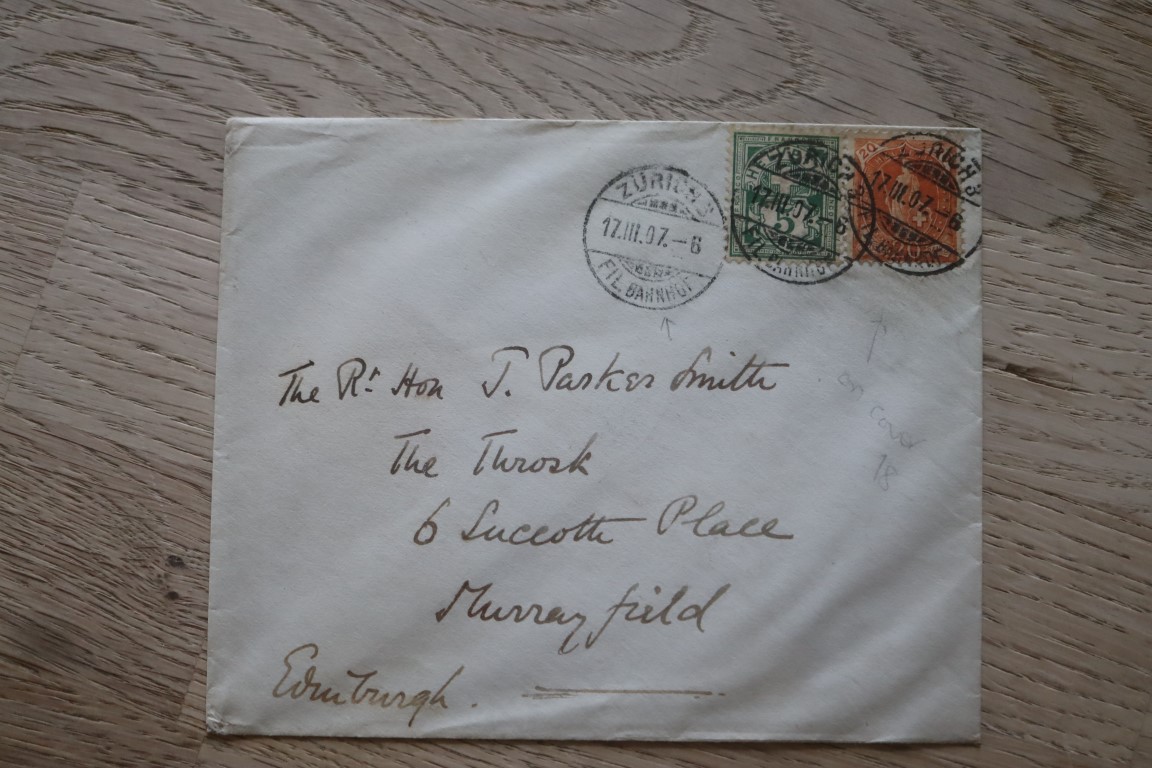 ZÜRICH 3
17.III.07.–6
FIL. BAHNHOF
5
ZÜRICH 3
17.III.07.–6
20
ZÜRICH 3
17.III.07.–6
The Rt Hon J. Parker Smith
The Throsk
6 Succoth Place
Murrayfield
Edinburgh.
on cover
18